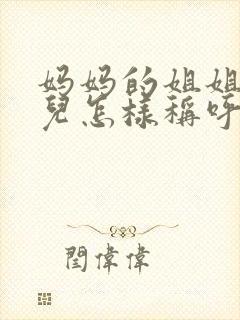 妈妈的姐姐
兒怎樣稱呼
閆偉偉